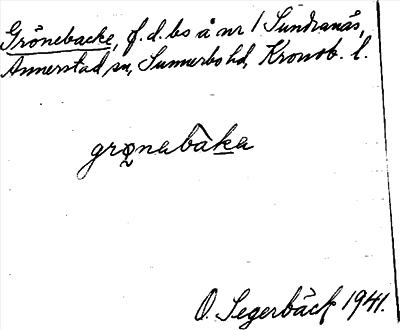 Grönebacke, f.d. bs å nr 1 Sundranäs,
Annerstad sn, Sunnerbo hd, Kronob. l.
grǫnabàka
O. Segerbäck 1941.